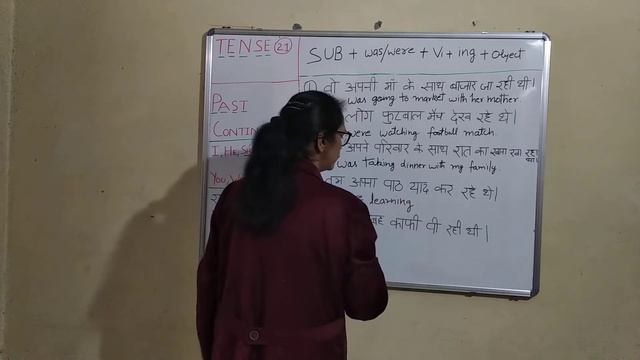 TENSE 21
SUB + was/were + V1 + ing + Object
PAST
CONTIN
I, He, S
You,
① वो अपनी माँ के साथ बाजार जा रही थी।
was going to market with her mother.
लोग फुटबाल मैच देख रहे थे।
were watching football match.
अपने परिवार के साथ रात का खाना खा रहा था।
was taking dinner with my family.
अपना पाठ याद कर रहे थे।
learning
काफी पी रही थी।